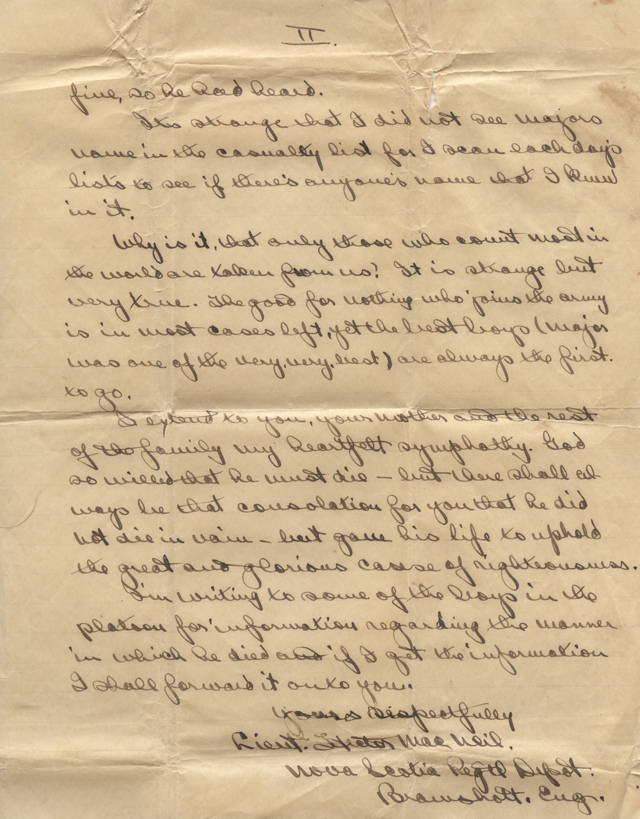 II.
fine, so he had heard.
Its strange that I did not see Majors
name in the casualty list for I scan each days
lists to see if there's anyone's name that I knew
in it.
Why is it, that only those who count most in
the world are taken from us? It is strange but
very true. The good for nothing who joins the army
is in most cases left, yet the best boys (Major
was one of the very, very, best) are always the first
to go.
I extend to you, your mother and the rest
of the family my heartfelt symphatty. God
so willed that he must die – but there shall al
ways be that consolation for you that he did
not die in vain – but gave his life to uphold
the great and glorious cause of righteousness.
I'm writing to some of the boys in the
platoon for information regarding the manner
in which he died and if I get the information
I shall forward it onto you.
Yours respectfully
Lieut. Hector MacNeil.
Nova Scotia Regtl Depot.
Bramshott. Eng.